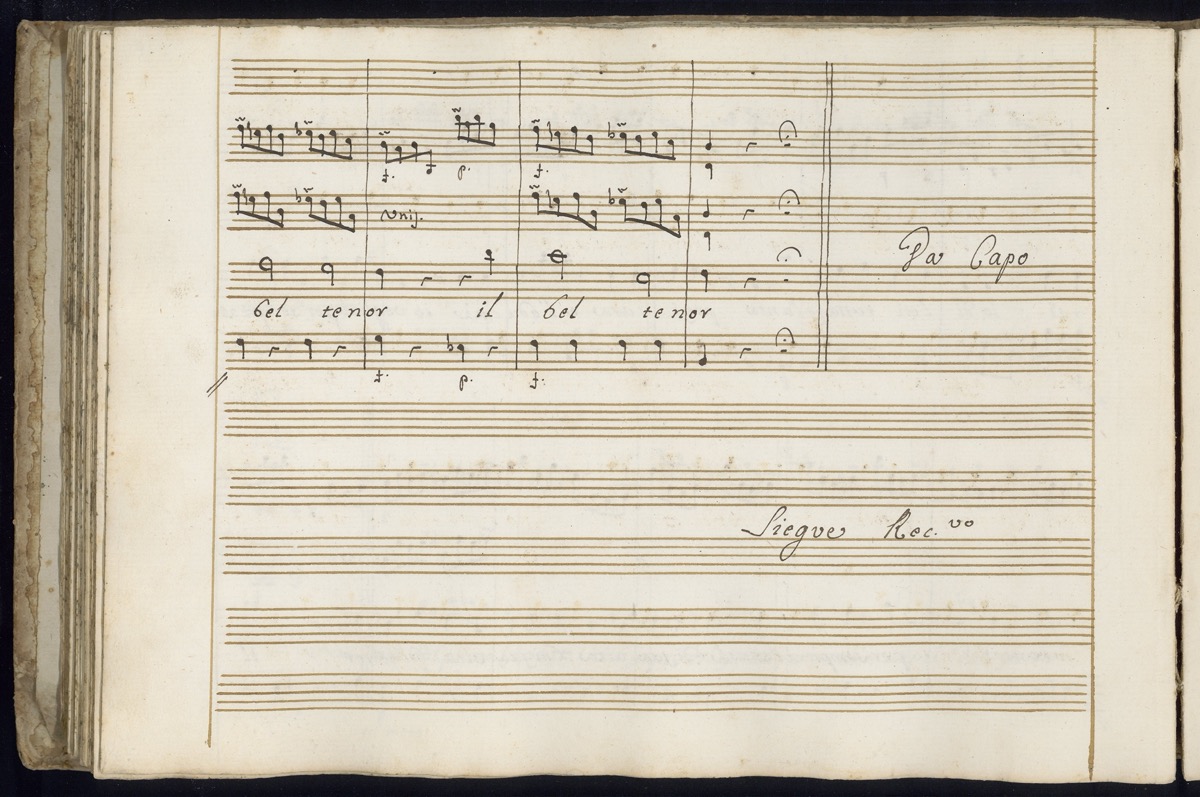 f. p. f.
Unis.
Da Capo
bel tenor il bel tenor
f. p. f.
Siegue Rec.vo